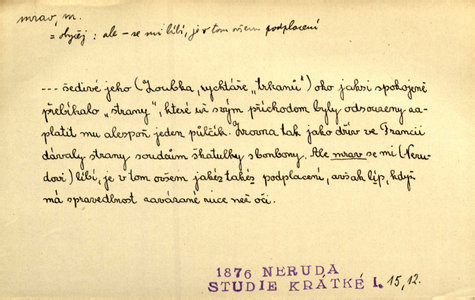 mrav, m.
= obyčej : ale - se mi líbí, je v tom ovšem podplacení
--- šedivé jeho (Loubka, rychtáře, „trhanů") oko jaksi spokojeně
přebíhalo „strany", které už svým příchodem byly odsouzeny za-
platit mu alespoň jeden půlčík. Zrovna tak jako dřív ve Francii
dávaly strany soudcům škatulky s bonbony. Ale mrav se mi (Neru-
dovi) líbí, je v tom ovšem jakés takés podplacení, avšak líp, když
má spravedlnost zavázané ruce než oči.
1876 NERUDA
STUDIE KRÁTKÉ I. 15, 12.